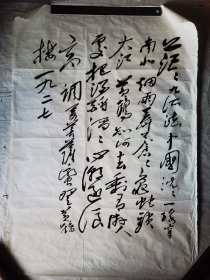 茫々九派流中國沉々一线穿
南北烟雨莽苍々龟蛇锁
大江黄鹤知何去剩有游人
处把酒酹滔々心潮逐浪
高调寄菩萨蛮登黄鹤
楼一九二七